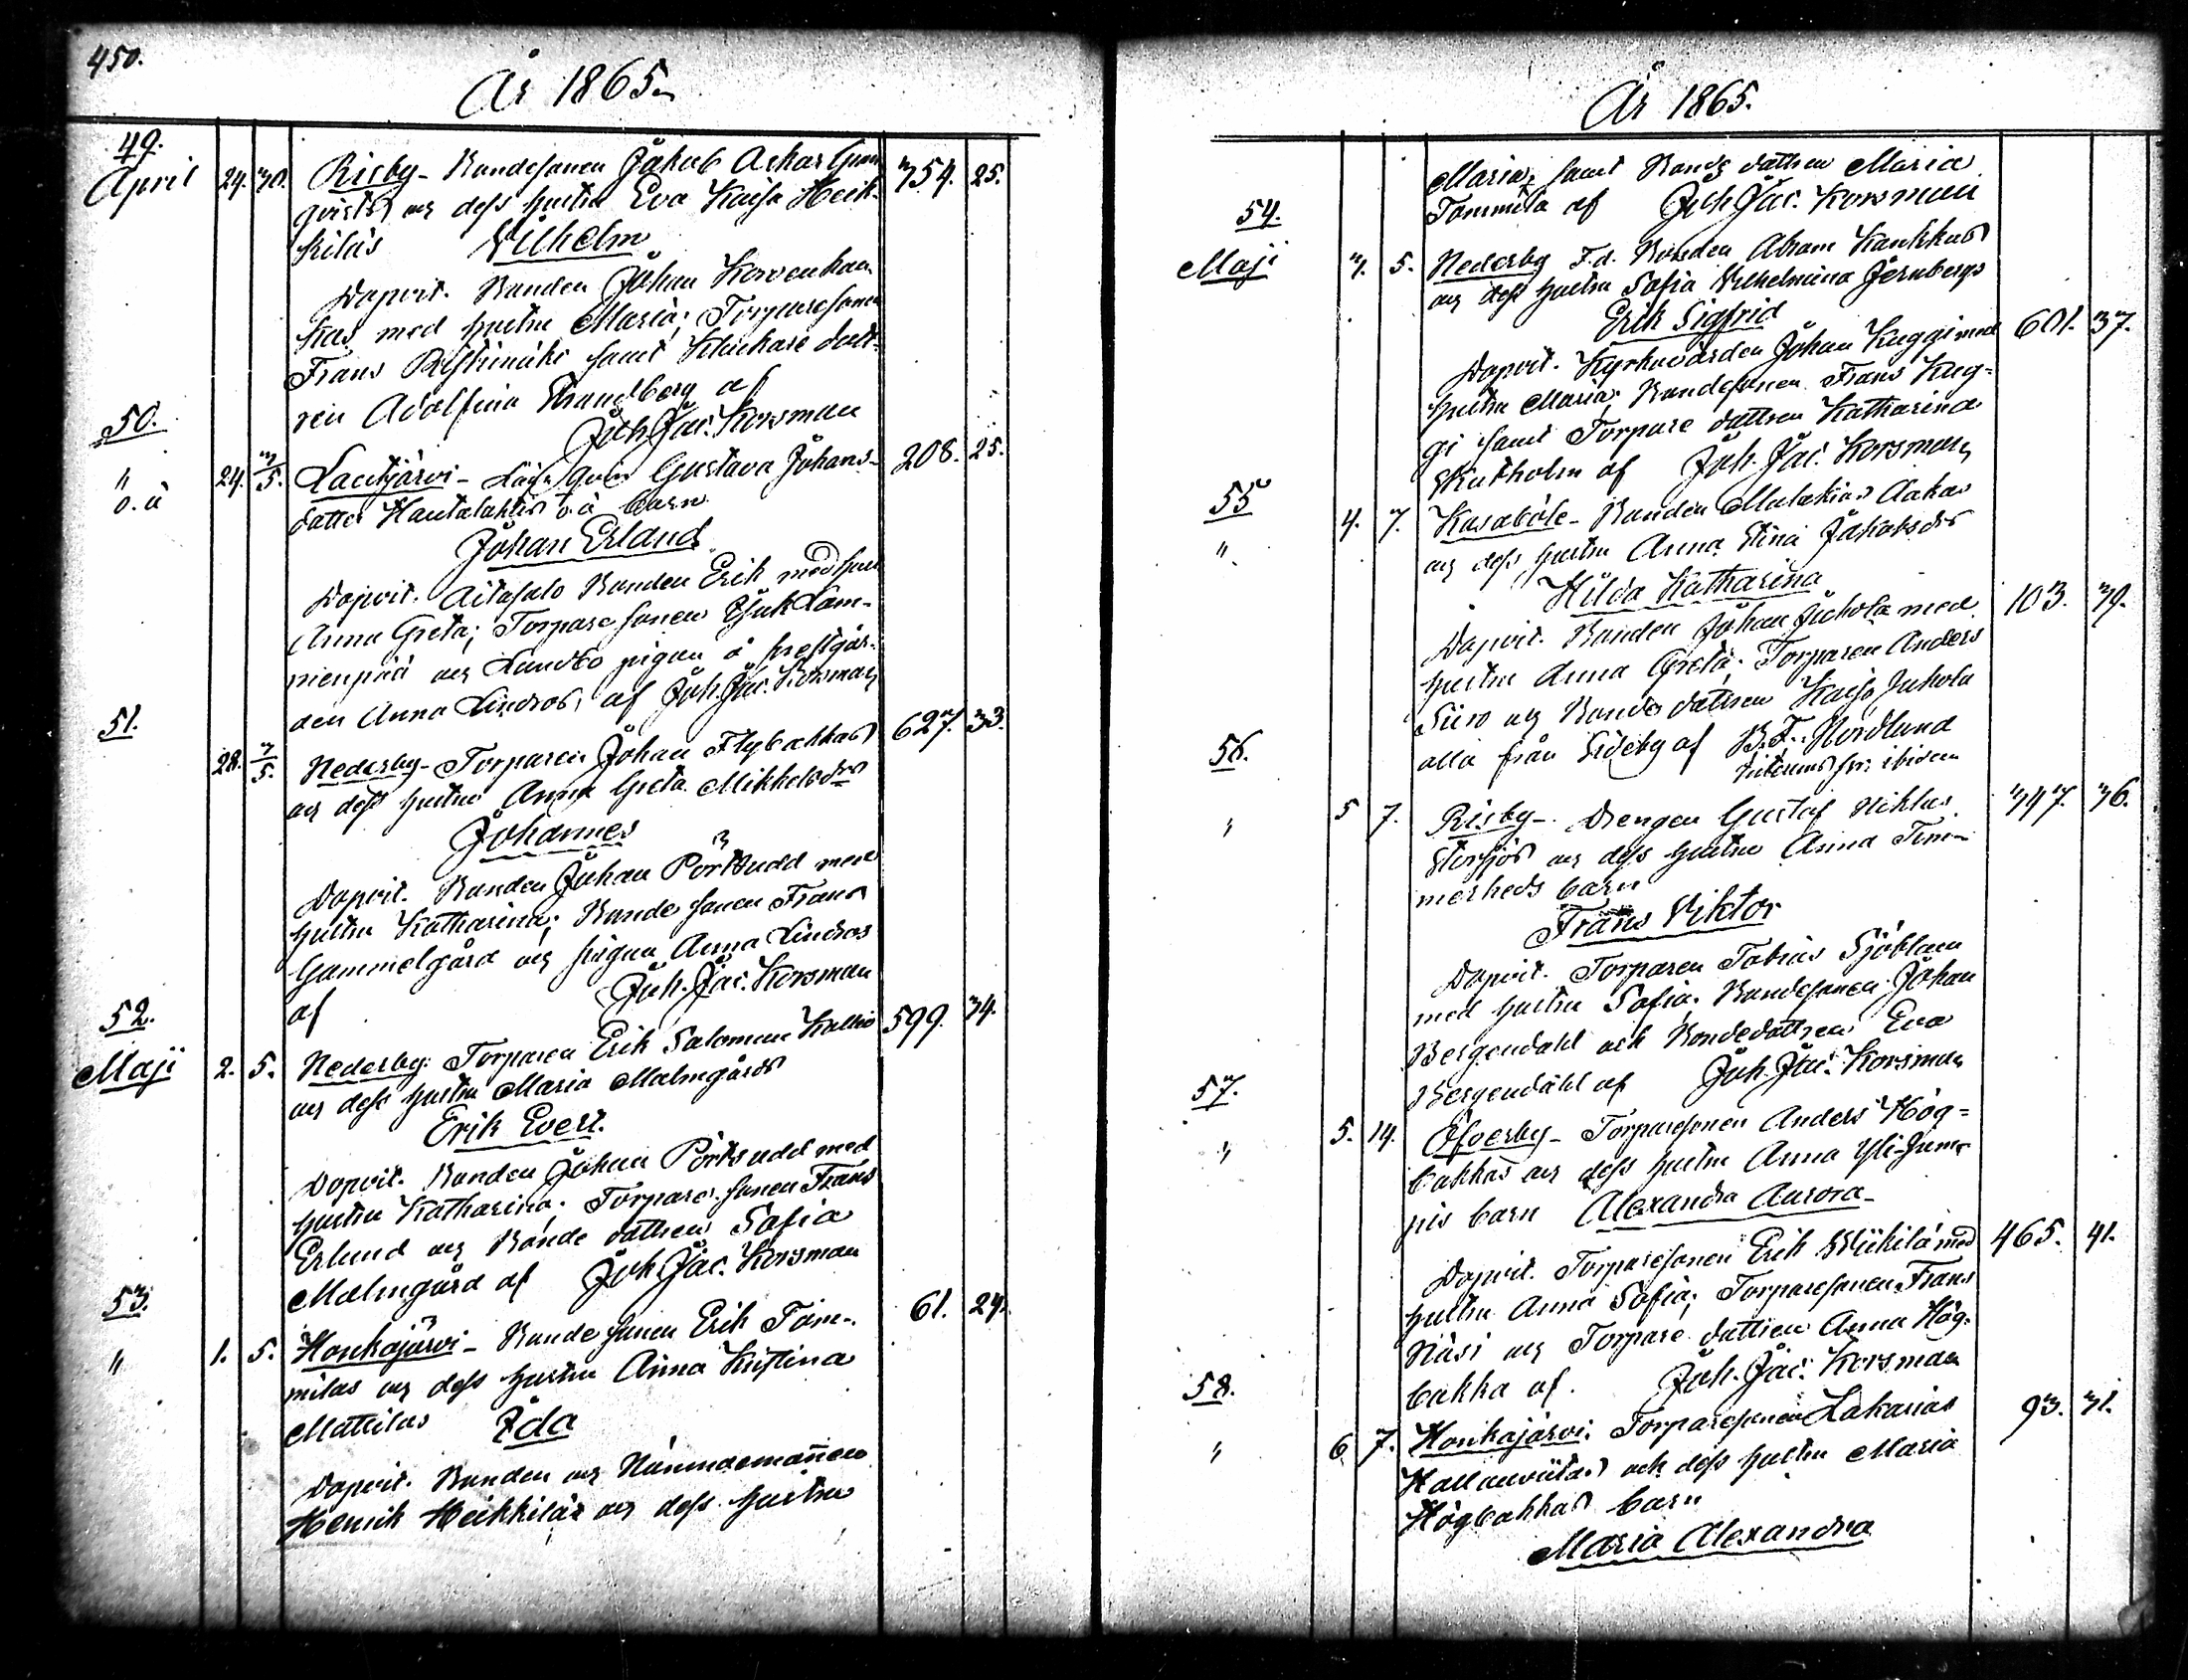 450.
År 1865.
49.
April 24. 30. Risby - Bondesonen Jakob Askar Gran
qvists och dess hustru Eva Kaisa Heik- 354. 25.
kiläs Vilhelm
Dopvit. Bonden Johan Korvenkan
kas med hustru Maria; Torparesonen
Frans Ristimäki samt Klockare dott-
ren Adolfina Strandberg af
Joh. Jac. Korsman
50.
" 24. 3/5. Lautjärvi - Gustava Johans- 208. 25.
o. ä dotter Hautalahtis o. ä barn
Johan Erland
Dopvit. Aitasalo Bonden Erik med hust
Anna Greta; Torpare sonen Isak Lam-
minpää och Lundbo pigan å prestgår-
den Anna Lindros, af Joh. Jac. Korsman
51.
28. 3/5. Nederby - Torparen Johan Flybakkas 627. 33.
och dess hustru Anna Greta Mikkelsdr
Johannes
Dopvit. Bonden Johan Pörtsudd med
hustru Katharina; Bonde sonen Frans
Gammelgård och pigan Anna Lindros
af Joh. Jac. Korsman
52.
Maji 2. 5. Nederby. Torparen Erik Salomon Kallio 599. 34.
och dess hustru Maria Malmgårds
Erik Evert.
Dopvit. Bonden Johan Pörtsudd med
hustru Katharina; Torpare sonen Frans
Erlund och Bonde dottren Sofia
Malmgård af Joh. Jac. Korsman
53.
" 1. 5. Honkajärvi - Bonde sonen Erik Tam- 61. 24.
milas och dess hustru Anna Kristina
Mattilas Ida
Dopvit. Bonden och Nämndemannen
Henrik Heikkilä och dess hustru
År 1865.
Maria; samt Bonde dottren Maria
Tammila af Joh. Jac. Korsman
54.
Maji 3. 5. Nederby F.d. Bonden Abram Kankkus
och dess hustru Sofia Vilhelmina Jernbergs
Erik Sigfrid 601. 37.
Dopvit. Kyrkovärden Johan Kuggi med
hustru Maria; Bondesonen Frans Kug-
gi samt Torpare dottren Katharina
Skutholm af Joh. Jac. Korsman
55
" 4. 7. Kasaböle - Bonden Malakias Aakas
och dess hustru Anna Stina Jakobsdrs
Hilda Katharina 103. 39.
Dopvit. Bonden Johan Juhola med
hustru Anna Greta; Torparen Anders
Siiro och Bonde dottren Kaisa Juhola
alla från Sideby af B. F. Nordlund
ibidem
56.
" 5 7. Risby - Drengen Gustaf Niklas 347. 36.
Storsjös och dess hustru Anna Tim-
merheds barn
Frans Viktor
Dopvit. Torparen Tobias Sjöblom
med hustru Sofia; Bondesonen Johan
Bergendahl och Bondedottren Eva
Bergendahl af Joh. Jac. Korsman
57.
" 5. 14. Öfverby - Torparesonen Anders Hög-
bakkas och dess hustru Anna Yli-Jum-
pis barn Alexandra Aurora
Dopvit. Torparesonen Erik Wiikilä med 465. 41.
hustru Anna Sofia; Torparesonen Frans
Näsi och Torpare dottren Anna Hög-
bakka af. Joh. Jac. Korsman
58.
" 6 7. Honkajärvi. Torparesonen Zakarias 93. 31.
Kallanviitas och dess hustru Maria
Högbakkas barn
Maria Alexandra